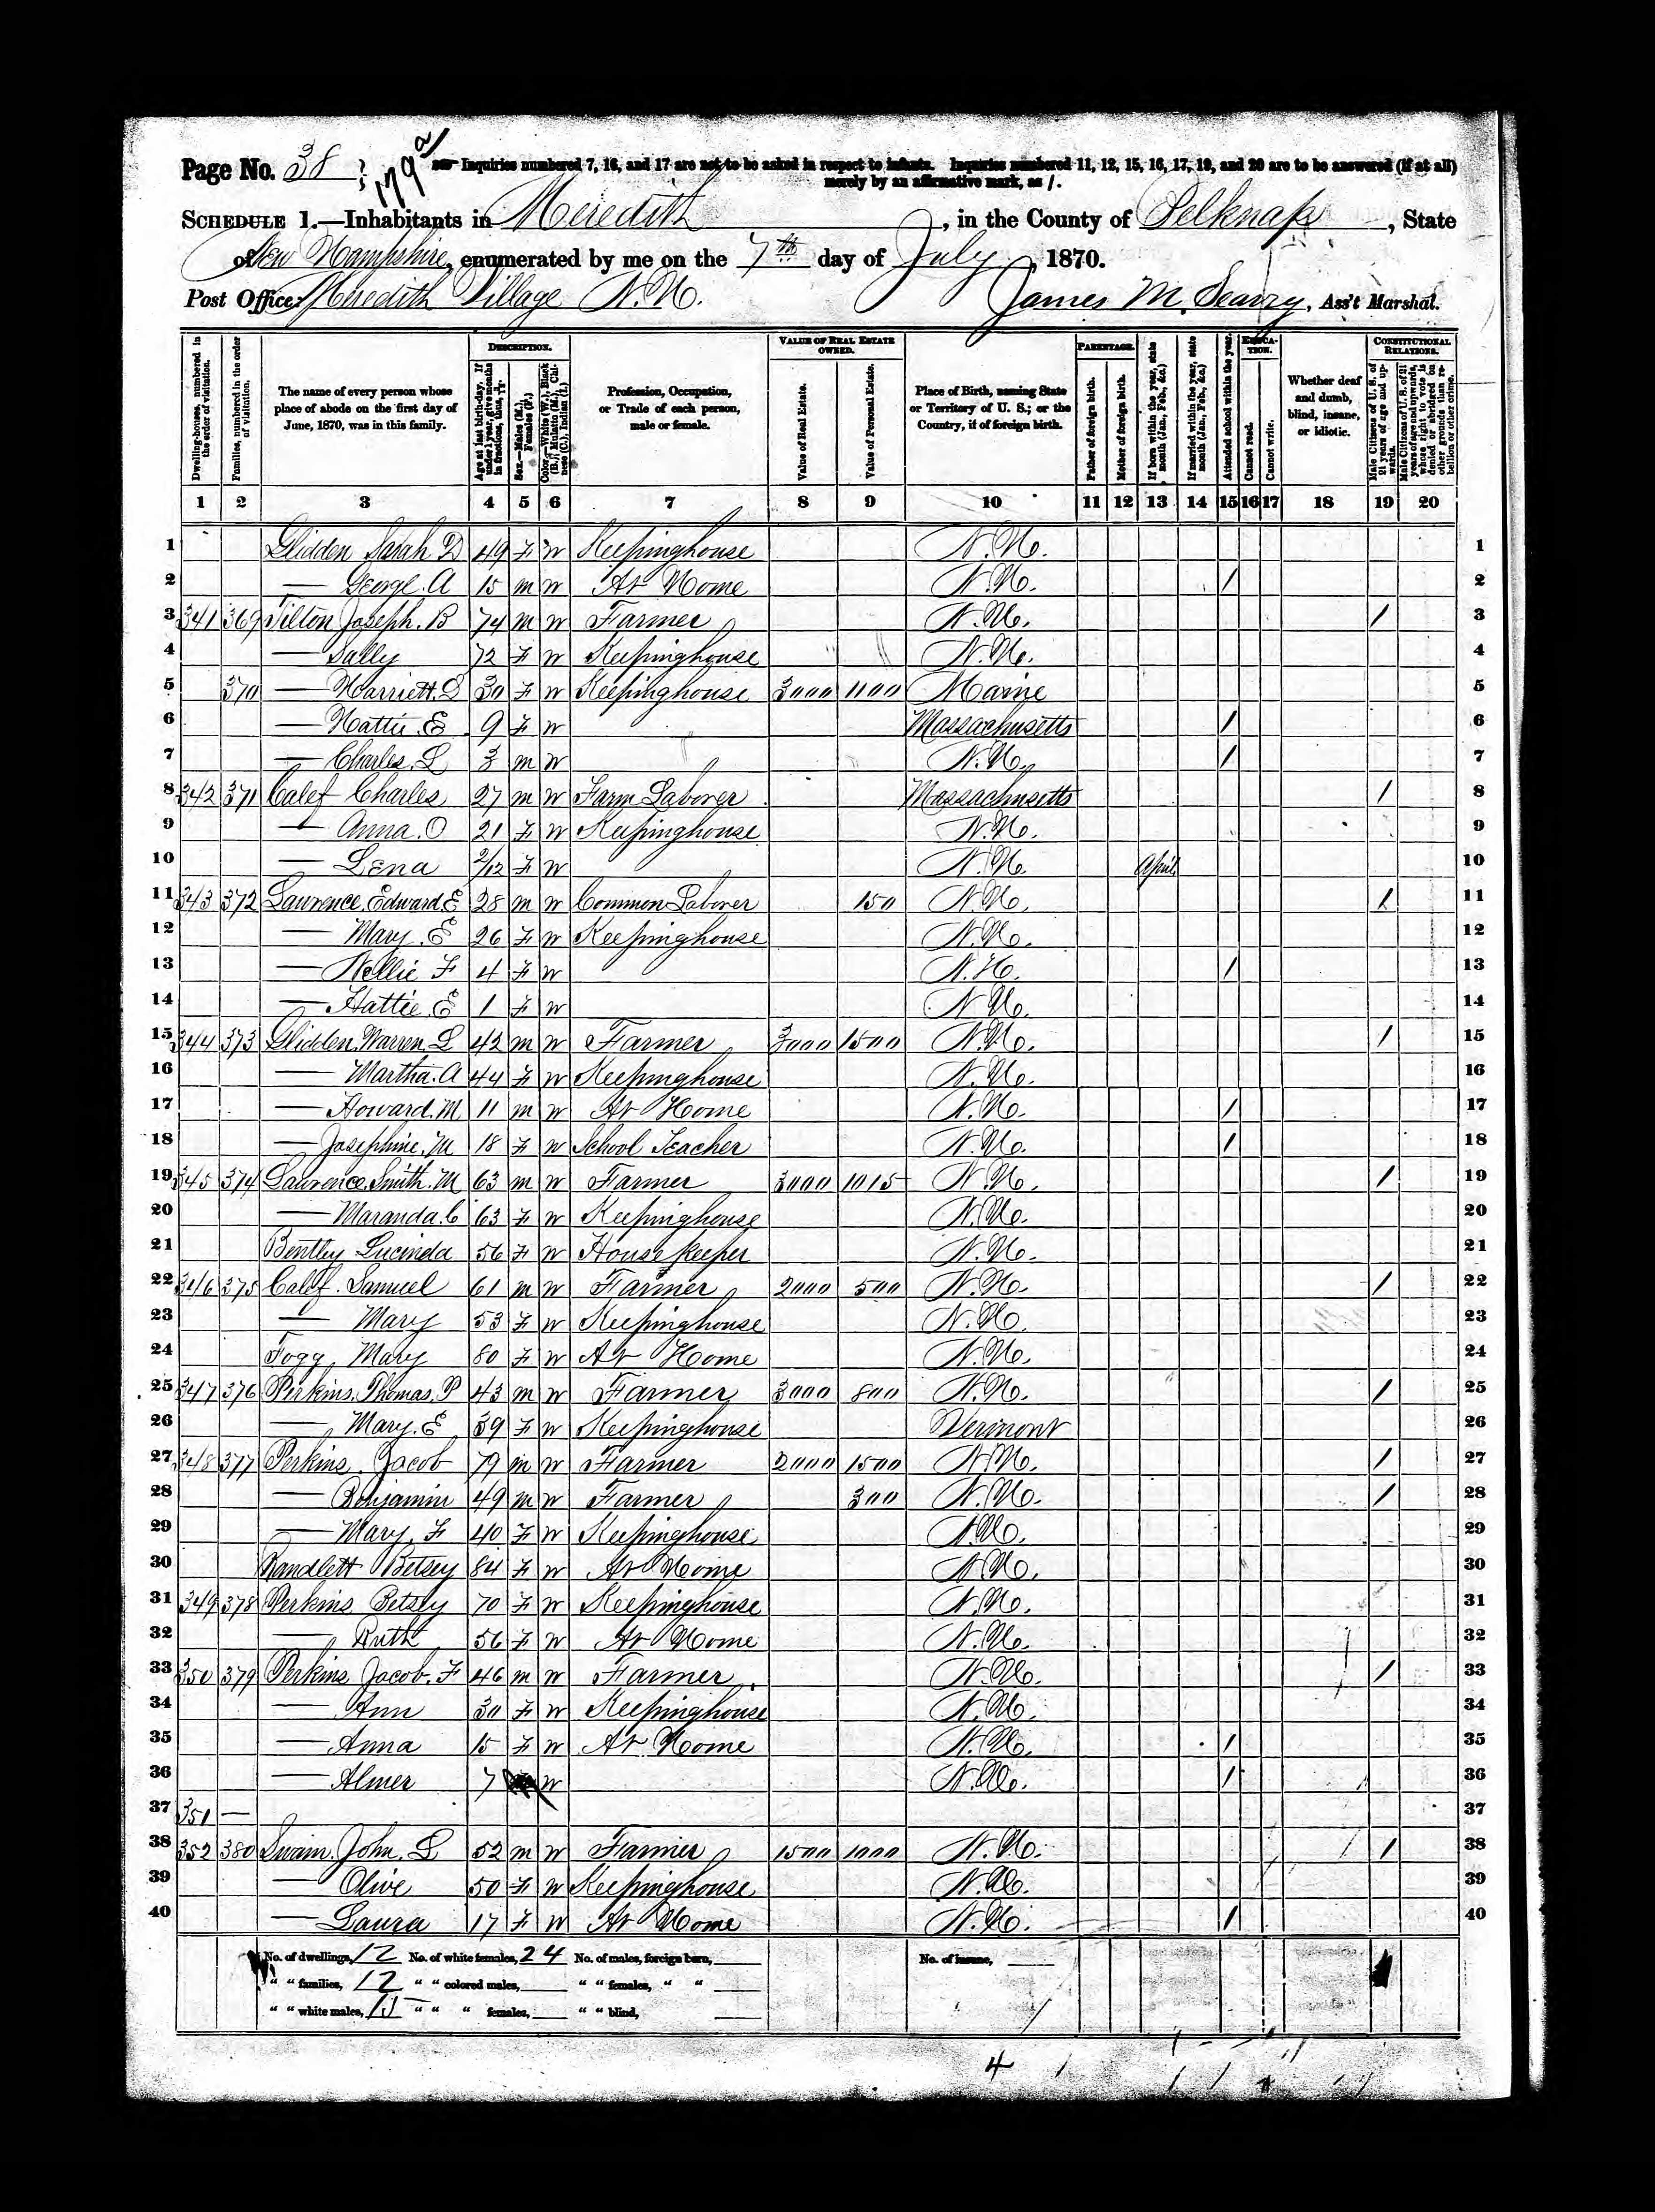 Page No. 38
179
Inquiries numbered 7, 16, and 17 are not to be asked in respect to infants. Inquiries numbered 11, 12, 15, 16, 17, 19, and 20 are to be answered (if at all)
merely by an affirmative mark, as /.
SCHEDULE 1.—Inhabitants in Meredith, in the County of Belknap, State
of New Hampshire, enumerated by me on the 7th day of July, 1870.
Post Office: Meredith Village N.H. James M. Searry, Ass't Marshal.
Dwelling-houses, numbered in the order of visitation.
Families, numbered in the order of visitation.
The name of every person whose place of abode on the first day of June, 1870, was in this family.
DESCRIPTION.
Age at last birth-day. If under 1 year, give months in fractions, thus,
Sex.—Males (M.), Females (F.)
Color.—White (W.), Black (B.), Mulatto (M.), Chinese (C.), Indian (I.)
Profession, Occupation, or Trade of each person, male or female.
VALUE OF REAL ESTATE OWNED.
Value of Real Estate.
Value of Personal Estate.
Place of Birth, naming State or Territory of U. S.; or the Country, if of foreign birth.
PARENTAGE.
Father of foreign birth.
Mother of foreign birth.
If born within the year, state month (Jan., Feb., &c.)
If married within the year, state month (Jan., Feb., &c.)
Attended school within the year.
EDUCATION.
Cannot read.
Cannot write.
Whether deaf and dumb, blind, insane, or idiotic.
CONSTITUTIONAL RELATIONS.
Male Citizens of U. S. of 21 years of age and upwards.
Male Citizens of U. S. of 21 years of age and upwards, whose right to vote is denied or abridged on other grounds than rebellion or other crime.
1 2 3 4 5 6 7 8 9 10 11 12 13 14 15 16 17 18 19 20
1 Glidden Sarah D 49 F W Keepinghouse N.H. 1
2 — George. A 15 m W At Home N.H. / 2
3 341 369 Tilton Joseph. B 74 m W Farmer N.H. / 3
4 — Sally 72 F W Keepinghouse N.H. 4
5 370 — Harriett. S 30 F W Keepinghouse 3000 1100 Maine 5
6 — Hattie. E 9 F W Massachusetts / 6
7 — Charles. L 3 m W N.H. / 7
8 342 371 Calef Charles 27 m W Farm Laborer Massachusetts / 8
9 — Anna. O 21 F W Keepinghouse N.H. 9
10 — Lena 2/12 F W N.H. April 10
11 343 372 Lawrence. Edward. E 28 m W Common Laborer 150 N.H. / 11
12 — Mary. E 26 F W Keepinghouse N.H. 12
13 — Nellie F 4 F W N.H. / 13
14 — Hattie. E 1 F W N.H. 14
15 344 373 Glidden. Warren. L 42 m W Farmer 3000 1500 N.H. / 15
16 — Martha. A 44 F W Keepinghouse N.H. 16
17 — Howard. M 11 m W At Home N.H. / 17
18 — Josephine. M 18 F W School Teacher N.H. / 18
19 345 374 Lawrence. Smith. M 63 m W Farmer 3000 1015 N.H. / 19
20 — Maranda. C 63 F W Keepinghouse N.H. 20
21 Bentley Lucinda 56 F W House keeper N.H. 21
22 346 375 Calef. Samuel 61 m W Farmer 2000 500 N.H. / 22
23 — Mary 53 F W Keepinghouse N.H. 23
24 Fogg, Mary 80 F W At Home N.H. 24
25 347 376 Perkins. Thomas. P 43 m W Farmer 3000 800 N.H. / 25
26 — Mary. E 39 F W Keepinghouse Vermont 26
27 348 377 Perkins. Jacob 79 m W Farmer 2000 1500 N.H. / 27
28 — Benjamin 49 m W Farmer 300 N.H. / 28
29 — Mary. F 40 F W Keepinghouse N.H. 29
30 Randlett Betsey 84 F W At Home N.H. 30
31 349 378 Perkins Betsey 70 F W Keepinghouse N.H. 31
32 — Ruth 56 F W At Home N.H. 32
33 350 379 Perkins Jacob. F 46 m W Farmer N.H. / 33
34 — Ann 30 F W Keepinghouse N.H. 34
35 — Anna 15 F W At Home N.H. / 35
36 — Almer 7 W N.H. / 36
37 351 — 37
38 352 380 Swain. John. L 52 m W Farmer 1500 1000 N.H. / 38
39 — Olive 50 F W Keepinghouse N.H. 39
40 — Laura 17 F W At Home N.H. / 40
No. of dwellings, 12 No. of white females, 24 No. of males, foreign born, No. of insane,
" " families, 12 " " colored males, " " females, " "
" " white males, 15 " " " females, " " blind,
4